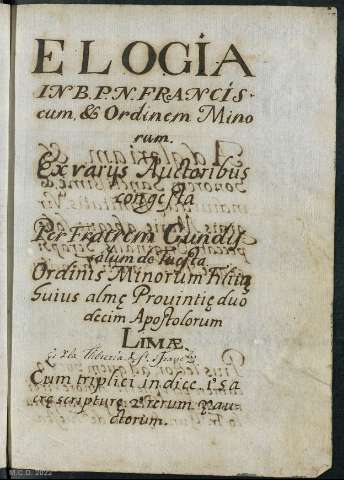 ELOGIA
IN B. P. N. FRANCIS-
cum, & Ordinem Mino
rum.
Ex varijs Auctoribus
congesta
Per Fratrem Gundis
alum de Tuesta
Ordinis Minorum Filiũ
huius almę Prouintię duo
decim Apostolorum
LIMÆ
Cum triplici indice. 1º. sa
crę scripturę 2º. rerum 3º. au
ctorum.
M.C.D. 2022